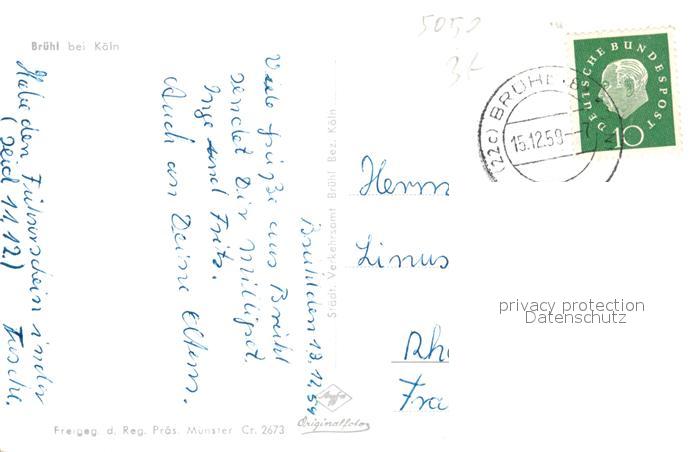 Brühl bei Köln
5050
Brühl den 13.12.59
Viele Grüße aus Brühl
sendet Dir
Inge und Fritz.
Auch an Deine Eltern.
Habe den Führerschein in der
(seit 11.12.) Tasche.
Städt. Verkehrsamt Brühl Bez. Köln
Agfa
Originalfoto
Freigeg. d. Reg. Präs. Münster Cr. 2673
DEUTSCHE BUNDESPOST
10
(22c) BRÜHL
15.12.59
Herrn
Linus
privacy protection
Datenschutz